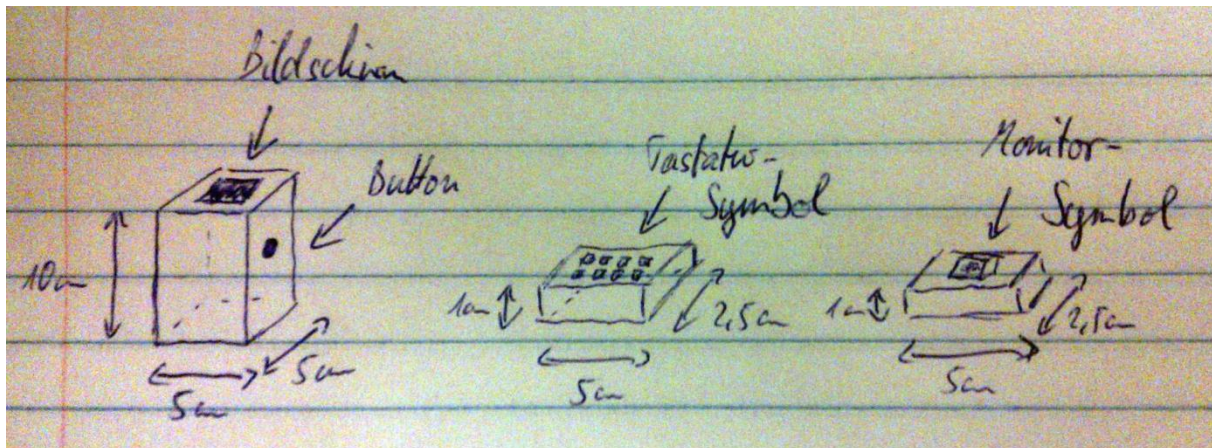 Bildschirm
Button
10cm
5cm
5cm
Tastatur-
Symbol
1cm
2,5cm
5cm
Monitor-
Symbol
1cm
2,5cm
5cm